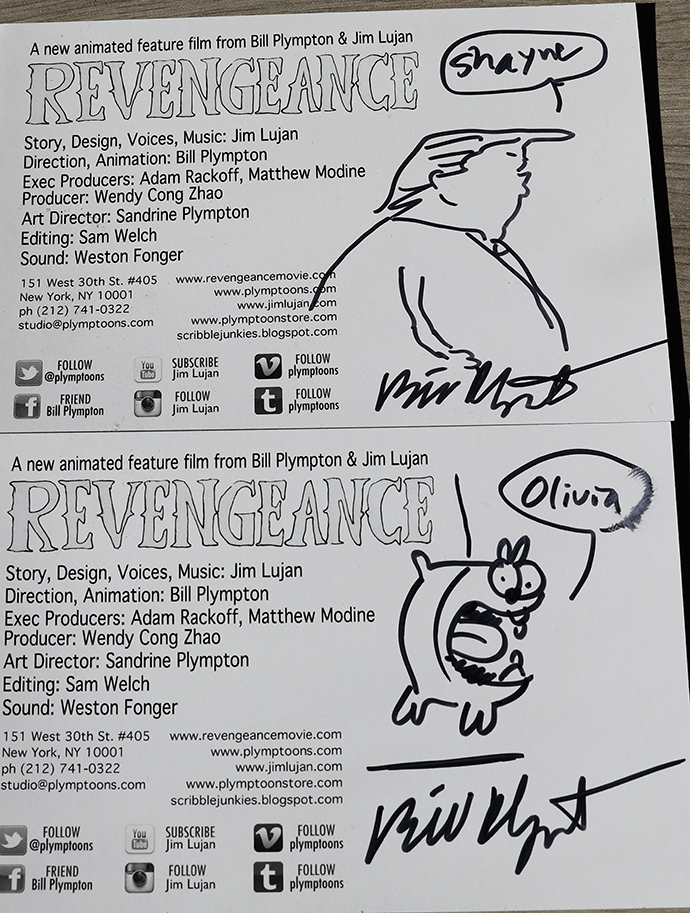 A new animated feature film from Bill Plympton & Jim Lujan
REVENGEANCE
shayne
Story, Design, Voices, Music: Jim Lujan
Direction, Animation: Bill Plympton
Exec Producers: Adam Rackoff, Matthew Modine
Producer: Wendy Cong Zhao
Art Director: Sandrine Plympton
Editing: Sam Welch
Sound: Weston Fonger
151 West 30th St. #405
New York, NY 10001
ph (212) 741-0322
studio@plymptoons.com
www.revengeancemovie.com
www.plymptoons.com
www.jimlujan.com
www.plymptoonstore.com
scribblejunkies.blogspot.com
FOLLOW
@plymptoons
You
Tube
SUBSCRIBE
Jim Lujan
FOLLOW
plymptoons
FRIEND
Bill Plympton
FOLLOW
Jim Lujan
t
FOLLOW
plymptoons
Bill Plympton
A new animated feature film from Bill Plympton & Jim Lujan
REVENGEANCE
Olivia
Story, Design, Voices, Music: Jim Lujan
Direction, Animation: Bill Plympton
Exec Producers: Adam Rackoff, Matthew Modine
Producer: Wendy Cong Zhao
Art Director: Sandrine Plympton
Editing: Sam Welch
Sound: Weston Fonger
151 West 30th St. #405
New York, NY 10001
ph (212) 741-0322
studio@plymptoons.com
www.revengeancemovie.com
www.plymptoons.com
www.jimlujan.com
www.plymptoonstore.com
scribblejunkies.blogspot.com
FOLLOW
@plymptoons
You
Tube
SUBSCRIBE
Jim Lujan
FOLLOW
plymptoons
FRIEND
Bill Plympton
FOLLOW
Jim Lujan
t
FOLLOW
plymptoons
Bill Plympton